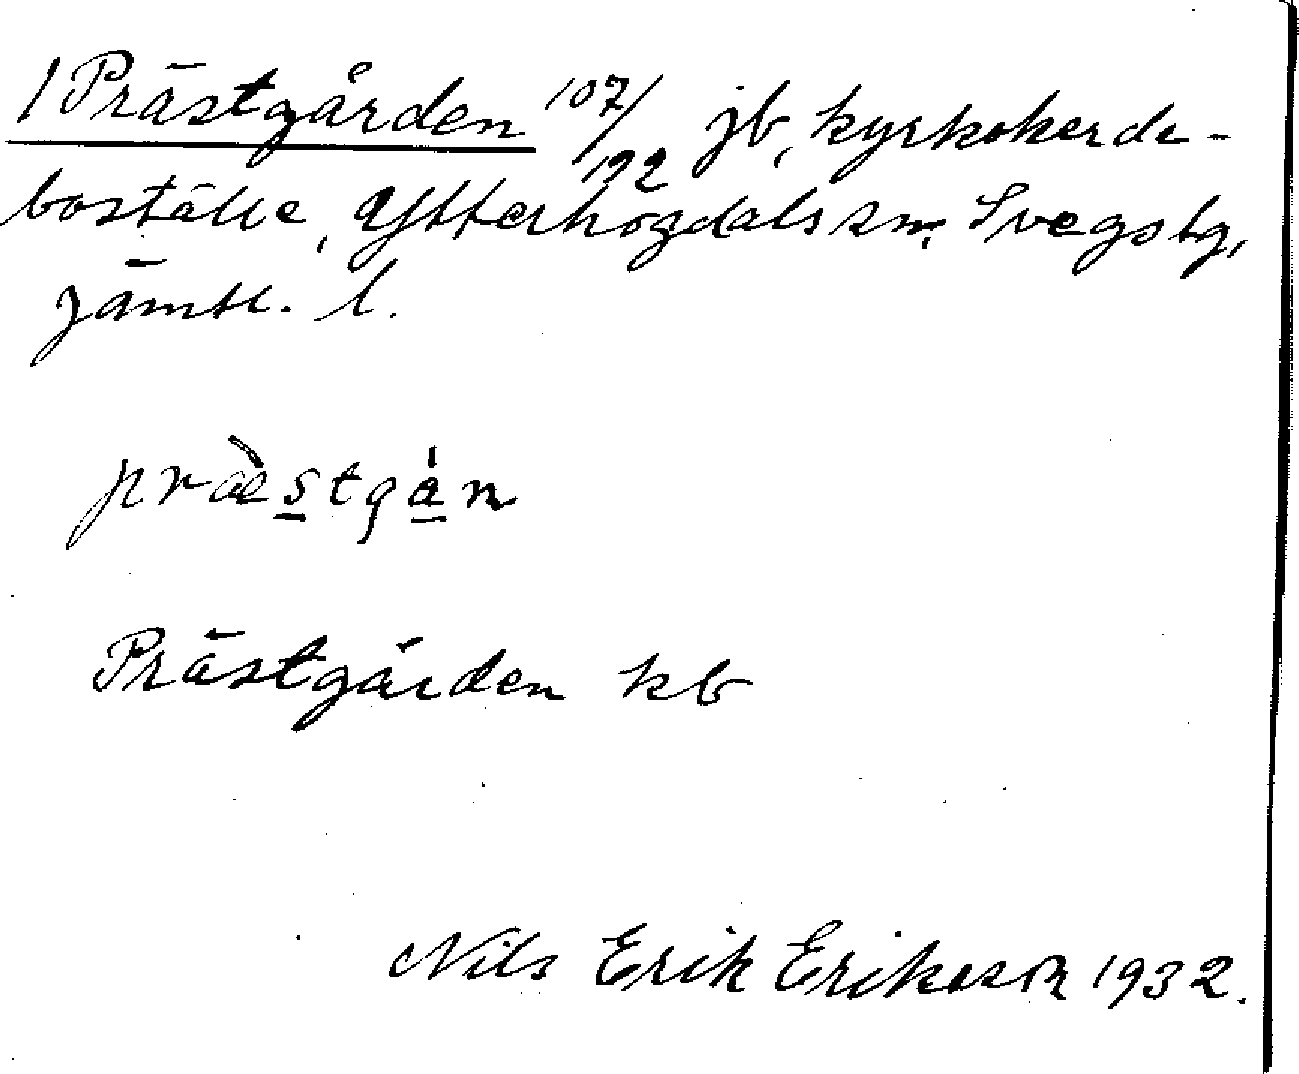 1 Prästgården 107/192 jb, kyrkoherde-
boställe, Ytterhogdals sn, Svegs tg,
Jämtl. l.
præ̀stgán
Prästgården kb
Nils Erik Eriksson 1932.